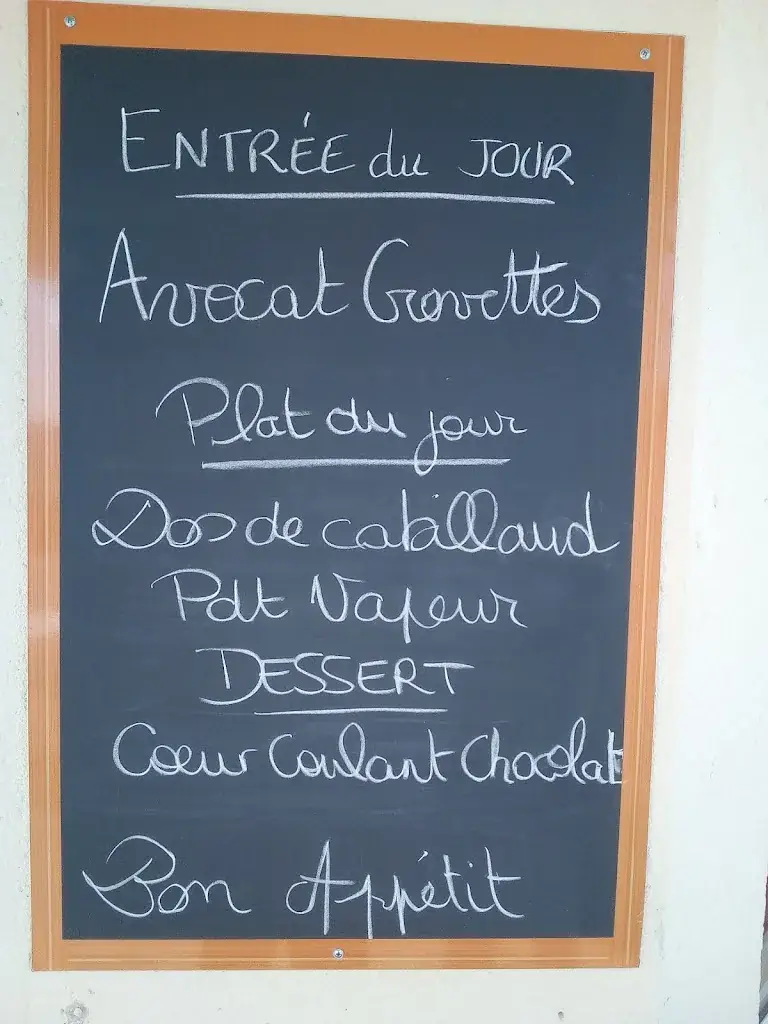 ENTRÉE du JOUR
Avocat Crevettes
Plat du jour
Dos de cabillaud
Pdt Vapeur
DESSERT
Coeur Coulant Chocolat
Bon Appétit